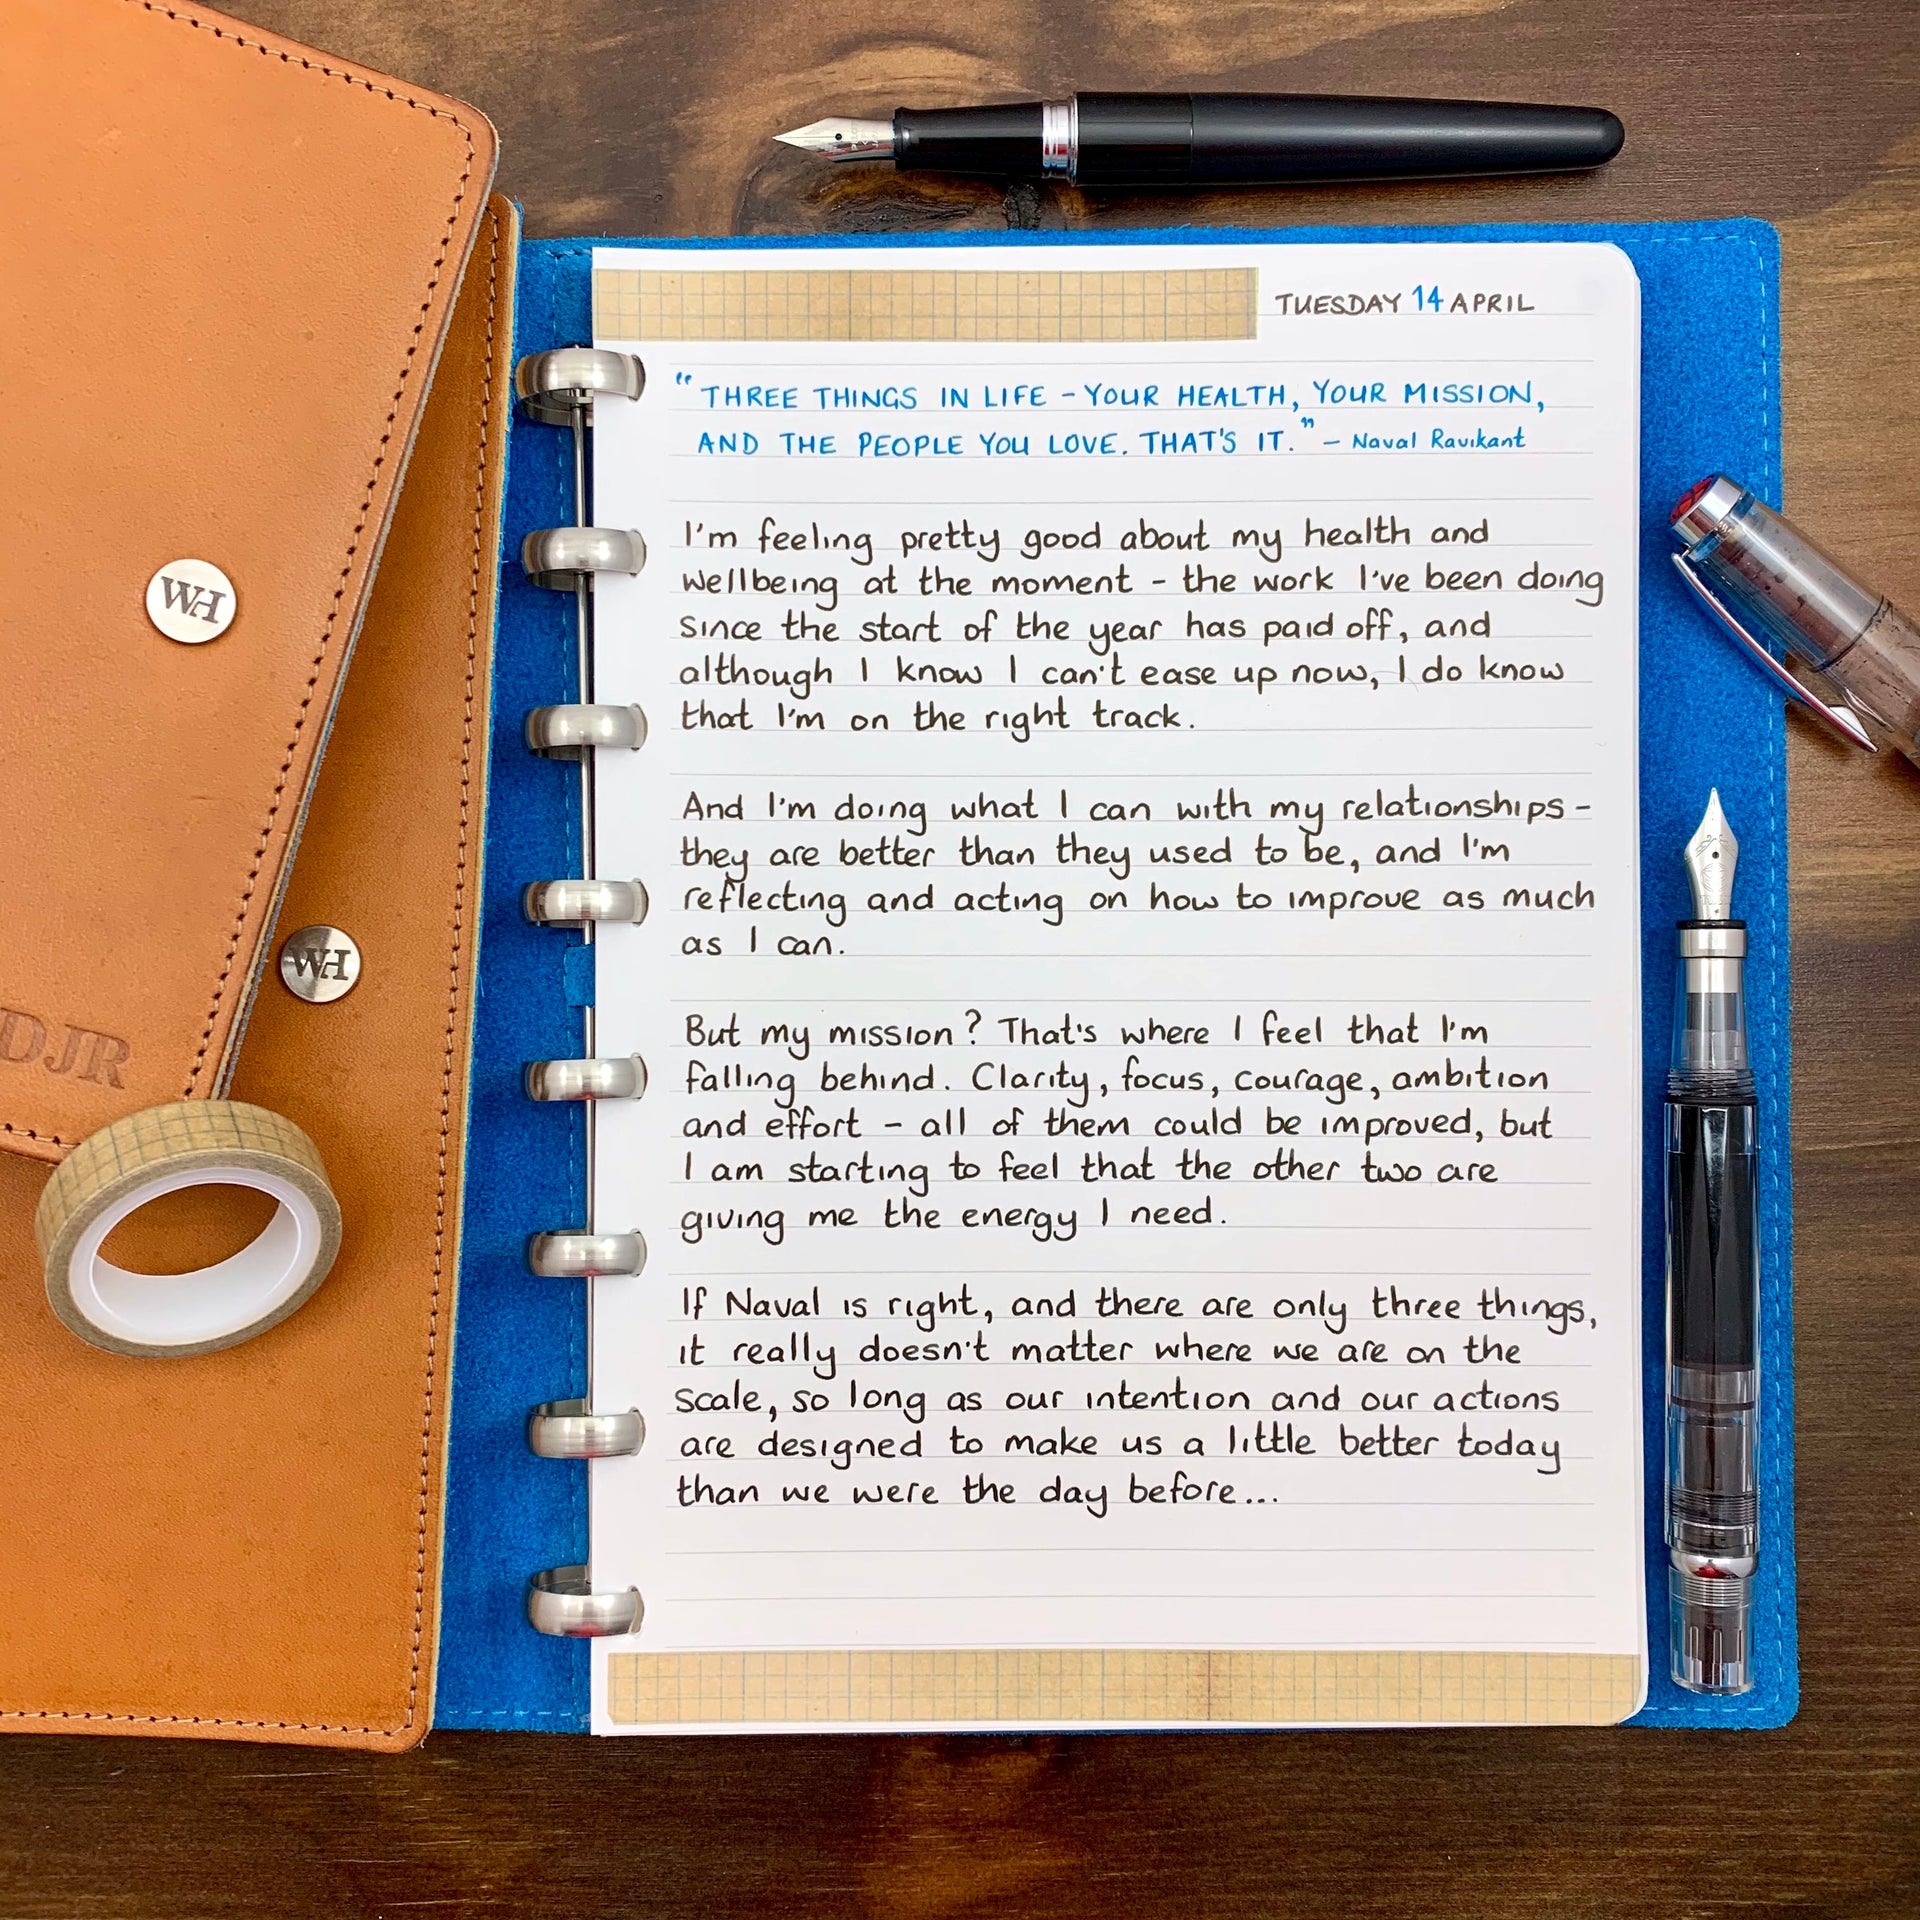 TUESDAY 14 APRIL
"THREE THINGS IN LIFE - YOUR HEALTH, YOUR MISSION,
AND THE PEOPLE YOU LOVE. THAT'S IT." - Naval Ravikant
I'm feeling pretty good about my health and
wellbeing at the moment - the work I've been doing
since the start of the year has paid off, and
although I know I can't ease up now, I do know
that I'm on the right track.
And I'm doing what I can with my relationships -
they are better than they used to be, and I'm
reflecting and acting on how to improve as much
as I can.
But my mission? That's where I feel that I'm
falling behind. Clarity, focus, courage, ambition
and effort - all of them could be improved, but
I am starting to feel that the other two are
giving me the energy I need.
If Naval is right, and there are only three things,
it really doesn't matter where we are on the
scale, so long as our intention and our actions
are designed to make us a little better today
than we were the day before...
WH
WH
DJR